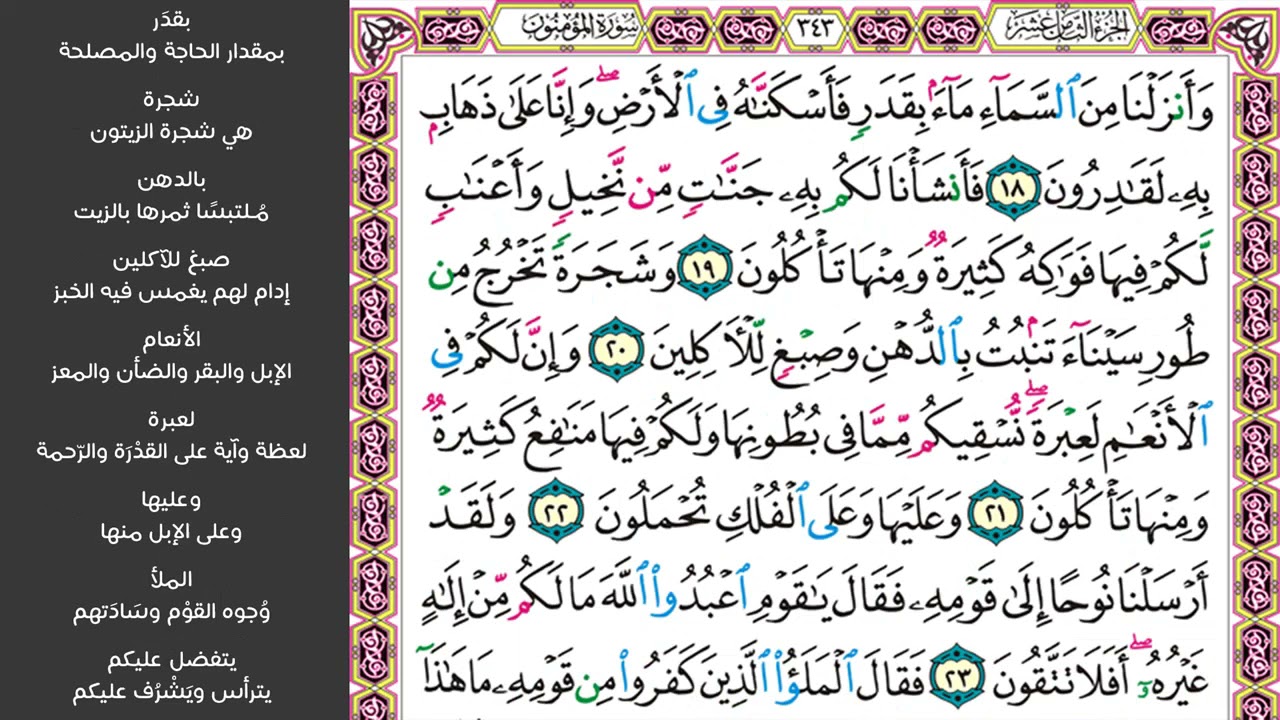 الجزء الثامن عشر
٣٤٣
سورة المؤمنون
وَأَنزَلْنَا مِنَ ٱلسَّمَآءِ مَآءًۢ بِقَدَرٍ فَأَسْكَنَّٰهُ فِى ٱلْأَرْضِ ۖ وَإِنَّا عَلَىٰ ذَهَابٍۭ
بِهِۦ لَقَٰدِرُونَ ١٨ فَأَنشَأْنَا لَكُم بِهِۦ جَنَّٰتٍ مِّن نَّخِيلٍ وَأَعْنَٰبٍ
لَّكُمْ فِيهَا فَوَٰكِهُ كَثِيرَةٌ وَمِنْهَا تَأْكُلُونَ ١٩ وَشَجَرَةً تَخْرُجُ مِن
طُورِ سَيْنَآءَ تَنۢبُتُ بِٱلدُّهْنِ وَصِبْغٍ لِّلْأَكِلِينَ ٢٠ وَإِنَّ لَكُمْ فِى
ٱلْأَنْعَٰمِ لَعِبْرَةً ۖ نُّسْقِيكُم مِّمَّا فِى بُطُونِهَا وَلَكُمْ فِيهَا مَنَٰفِعُ كَثِيرَةٌ
وَمِنْهَا تَأْكُلُونَ ٢١ وَعَلَيْهَا وَعَلَى ٱلْفُلْكِ تُحْمَلُونَ ٢٢ وَلَقَدْ
أَرْسَلْنَا نُوحًا إِلَىٰ قَوْمِهِۦ فَقَالَ يَٰقَوْمِ ٱعْبُدُوا۟ ٱللَّهَ مَا لَكُم مِّنْ إِلَٰهٍ
غَيْرُهُۥٓ ۖ أَفَلَا تَتَّقُونَ ٢٣ فَقَالَ ٱلْمَلَؤُا۟ ٱلَّذِينَ كَفَرُوا۟ مِن قَوْمِهِۦ مَا هَٰذَآ
بقدَر
بمقدار الحاجة والمصلحة
شجرة
هي شجرة الزيتون
بالدهن
مُلتبسًا ثمرها بالزيت
صبغ للآكلين
إدام لهم يغمس فيه الخبز
الأنعام
الإبل والبقر والضأن والمعز
لعبرة
لعظة وآية على القدْرَة والرّحمة
وعليها
وعلى الإبل منها
الملأ
وُجوه القوْم وسَادَتهم
يتفضل عليكم
يترأس ويَشْرُف عليكم